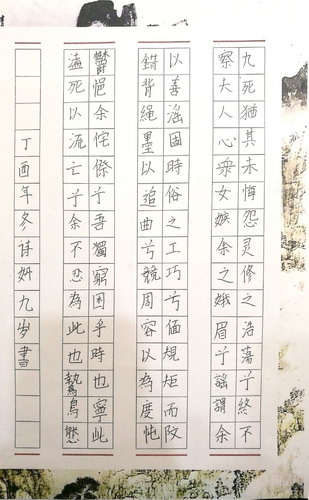 九死猶其未悔怨灵修之浩蕩兮終不
察夫人心衆女嫉余之娥眉兮謡謂余
以善淫固時俗之工巧兮偭規矩而改
錯背繩墨以追曲兮競周容以為度忳
鬱悒余侘傺兮吾獨窮困乎時也寧此
溘死以流亡兮余不忍為此也鷙鳥
丁酉年冬诗妍九岁書